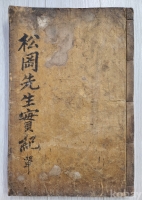 松岡先生實紀 單